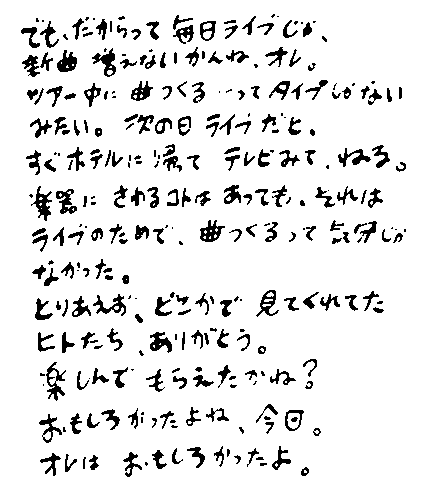 でも、だからって毎日ライブじゃ、
新曲増えないかんね、オレ。
ツアー中に曲つくる…ってタイプじゃない
みたい。次の日ライブだと、
すぐホテルに帰ってテレビみて、ねる。
楽器にさわるコトはあっても、それは
ライブのためで、曲つくるって気分じゃ
なかった。
とりあえず、どこかで見てくれてた
ヒトたち、ありがとう。
楽しんでもらえたかね?
おもしろかったよね、今日。
オレはおもしろかったよ。